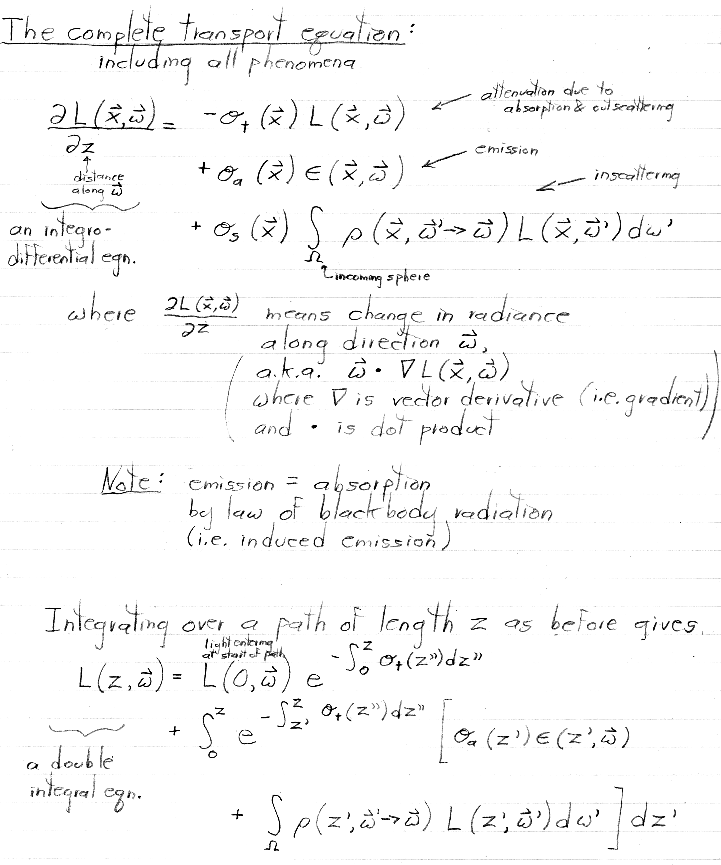 The complete transport equation:
including all phenomena
∂L(x⃗,ω⃗)/∂z = -σt(x⃗) L(x⃗,ω⃗) ← attenuation due to absorption & outscattering
↑ distance along ω⃗
+ σa(x⃗) ∈(x⃗,ω⃗) ← emission
an integro-
differential eqn.
+ σs(x⃗) ∫Ω ρ(x⃗,ω⃗'→ω⃗) L(x⃗,ω⃗') dω' ← inscattering
incoming sphere
where ∂L(x⃗,ω⃗)/∂z means change in radiance
along direction ω⃗,
(a.k.a. ω⃗ • ∇L(x⃗,ω⃗)
where ∇ is vector derivative (i.e. gradient)
and • is dot product)
Note: emission = absorption
by law of blackbody radiation
(i.e. induced emission)
Integrating over a path of length z as before gives
light entering
at start of path
L(z,ω⃗) = L(0,ω⃗) e^(-∫₀^z σt(z'')dz'')
+ ∫₀^z e^(-∫z'^z σt(z'')dz'') [σa(z') ∈(z',ω⃗)
a double
integral eqn.
+ ∫Ω ρ(z',ω⃗'→ω⃗) L(z',ω⃗') dω'] dz'